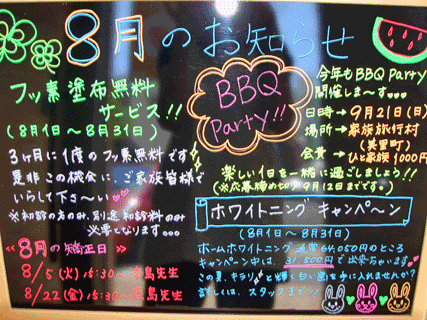 8月のお知らせ
フッ素塗布無料
サービス!!
(8月1日〜8月31日)
3ヶ月に1度のフッ素無料です
是非この機会に、ご家族皆様で
いらして下さ〜い
※初診の方のみ、別途初診料のみ
必要となります…
BBQ
Party!!
今年もBBQ Party
開催しま〜す…
日時→9月21日(日)
場所→家族旅行村
(美里町)
会費→ひと家族1000円
楽しい1日を一緒に過ごしましょう!!
(※応募締め切り9月12日までです。)
ホワイトニング キャンペーン
(8月1日〜8月31日)
ホームホワイトニング 通常64,050円のところ
キャンペーン中は、31,500円で出来ちゃいます
この夏、キラリと輝く白い歯を手に入れませんか?
詳しくは、スタッフまで
8月の矯正日
8/5(火)15:30〜 島先生
8/22(金)15:30〜 島先生